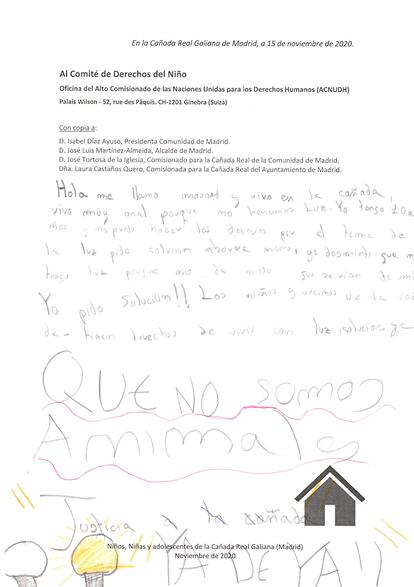 En la Cañada Real Galiana de Madrid, a 15 de noviembre de 2020.
Al Comité de Derechos del Niño
Oficina del Alto Comisionado de las Naciones Unidas para los Derechos Humanos (ACNUDH)
Palais Wilson - 52, rue des Pâquis. CH-1201 Ginebra (Suiza)
Con copia a:
D. Isabel Díaz Ayuso, Presidenta Comunidad de Madrid.
D. José Luis Martínez-Almeida, Alcalde de Madrid.
D. José Tortosa de la Iglesia, Comisionado para la Cañada Real de la Comunidad de Madrid.
Dña. Laura Castaños Quero, Comisionada para la Cañada Real del Ayuntamiento de Madrid.
Hola me llamo y vivo en la cañada,
vivo muy mal porque no tenemos Luz. Yo tengo 10 a
ños y no puedo hacer los deberes por el tema de
la luz pido solucion
luz porque me da miedo que se rian de mi
Yo pido Solucion!! Los niños y vecinos de la ca
da tienen derechos de vivir con luz ¡solucion ya
QUE NO somos
Animales
Justicia a la cañada
Niños, Niñas y adolescentes de la Cañada Real Galiana (Madrid)
Noviembre de 2020
YA DE YA!!